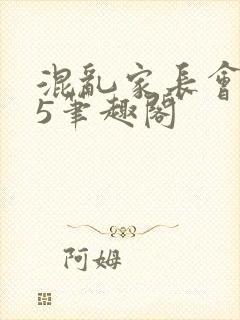 混亂家長會
5筆趣閣
阿姆